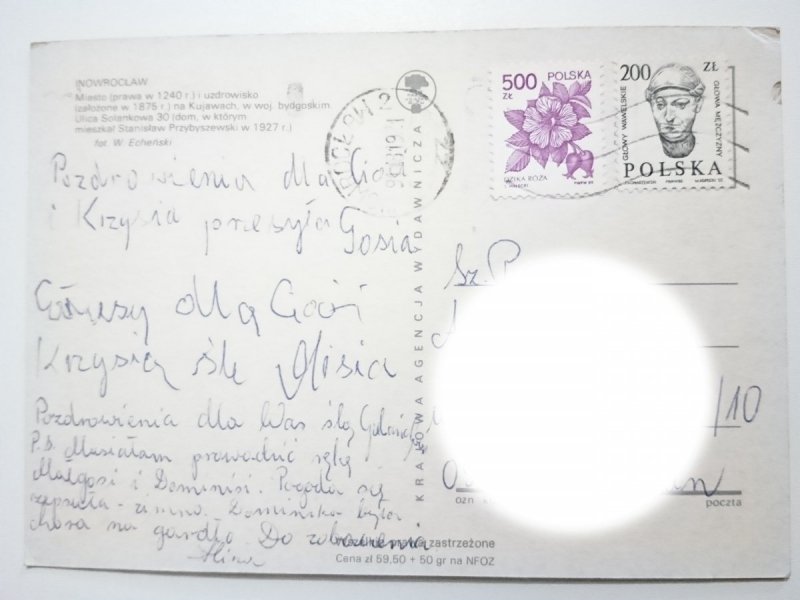 INOWROCŁAW
Miasto (prawa w 1240 r.) i uzdrowisko
(założone w 1875 r.) na Kujawach, w woj. bydgoskim.
Ulica Solankowa 30 (dom, w którym
mieszkał Stanisław Przybyszewski w 1927 r.)
fot. W. Echeński
Pozdrowienia dla Gosi
i Krzysia przesyła Gosia
Całusy dla Gosi
Krzysia śle Misia
Pozdrowienia dla Was ślą
P.S. Musiałam prowadzić rękę
Małgosi i Dominisi. Pogoda się
zepsuła - zimno. Dominika była
chora na gardło. Do zobaczenia
Alina
KRAJOWA AGENCJA WYDAWNICZA
500 POLSKA
ZŁ
DZIKA RÓŻA
200 ZŁ
GŁOWY WAWELSKIE
GŁOWA MĘŻCZYZNY
POLSKA
Sz. P.
/10
poczta
prawa zastrzeżone
Cena zł 59.50 + 50 gr na NFOZ